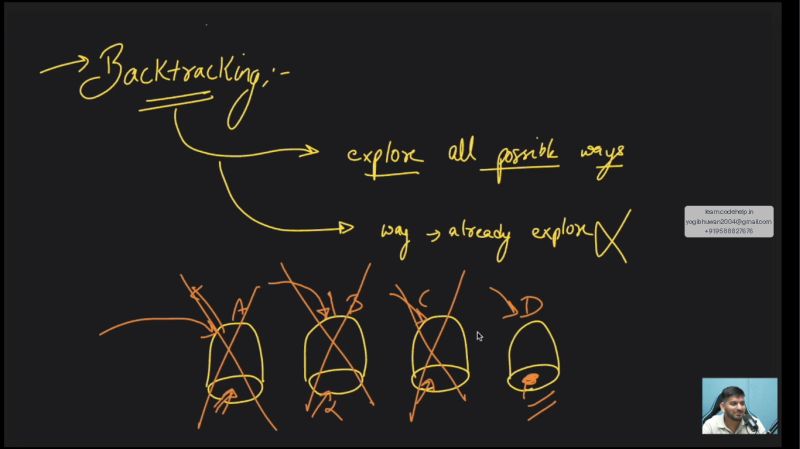 → Backtracking :-
explore all possible ways
way → already explore X
A B C D
learn.codehelp.in
yogibhuwan2004@gmail.com
+919588827676